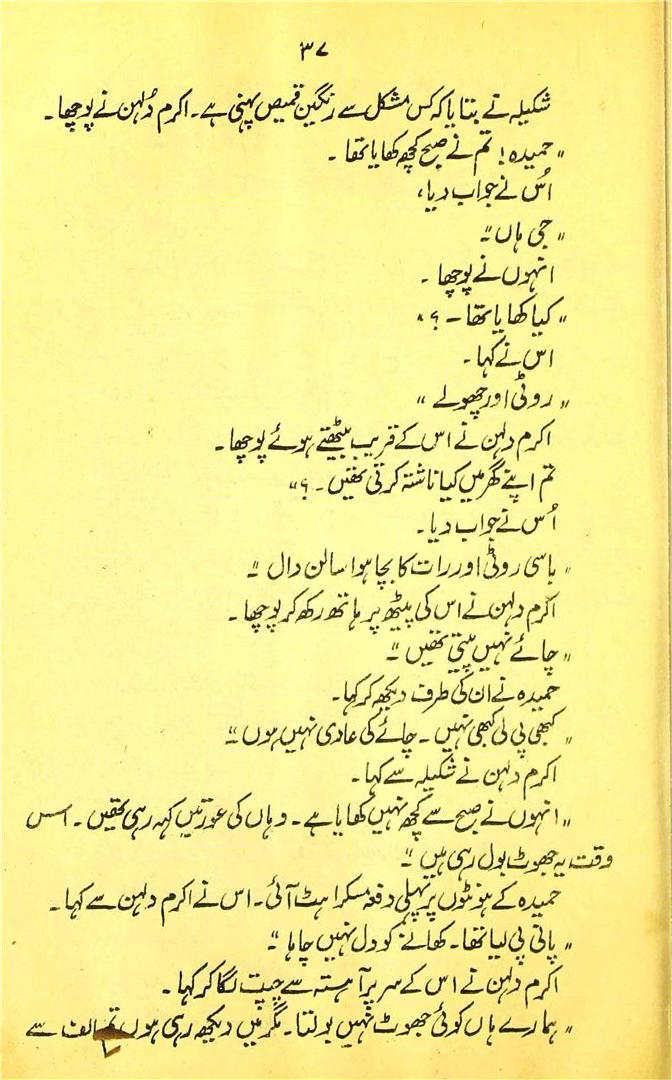 ۳۷
شکیلہ نے بتایا کہ کس مشکل سے رنگین قمیص پہنی ہے۔ اکرم دُلہن نے پوچھا۔
"حمیدہ! تم نے صبح کچھ کھایا تھا۔
اُس نے جواب دیا،
"جی ہاں"۔
انہوں نے پوچھا۔
"کیا کھایا تھا۔؟"
اس نے کہا۔
"روٹی اور چھولے"
اکرم دلہن نے اس کے قریب بیٹھتے ہوئے پوچھا۔
تم اپنے گھر میں کیا ناشتہ کرتی تھیں۔؟"
اُس نے جواب دیا۔
"باسی روٹی اور رات کا بچا ہوا سالن دال"۔
اکرم دلہن نے اس کی پیٹھ پر ہاتھ رکھ کر پوچھا۔
"چائے نہیں پیتی تھیں"۔
حمیدہ نے ان کی طرف دیکھ کر کہا۔
"کبھی پی لی کبھی نہیں۔ چائے کی عادی نہیں ہوں"۔
اکرم دلہن نے شکیلہ سے کہا۔
"انہوں نے صبح سے کچھ نہیں کھایا ہے۔ وہاں کی عورتیں کہہ رہی تھیں۔ اس
وقت یہ جھوٹ بول رہی ہیں"۔
حمیدہ کے ہونٹوں پر پہلی دفعہ مسکراہٹ آئی۔ اس نے اکرم دلہن سے کہا۔
"پانی پی لیا تھا۔ کھانے کو دل نہیں چاہا"۔
اکرم دلہن نے اس کے سر پر آہستہ سے چپت لگا کر کہا۔
"ہمارے ہاں کوئی جھوٹ نہیں بولتا۔ مگر میں دیکھ رہی ہوں تم الف سے